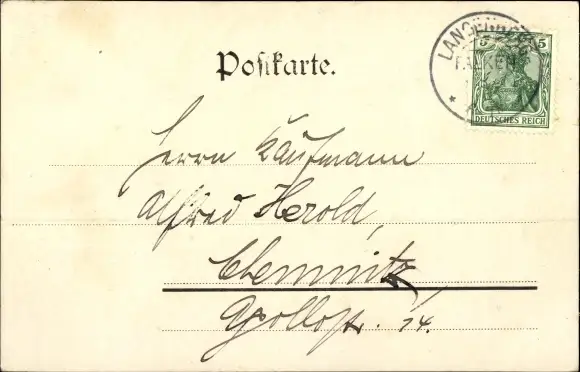 Postkarte.
5 5
DEUTSCHES REICH
Herrn Kaufmann
Alfred Herold,
Chemnitz,
Apollostr. 14.